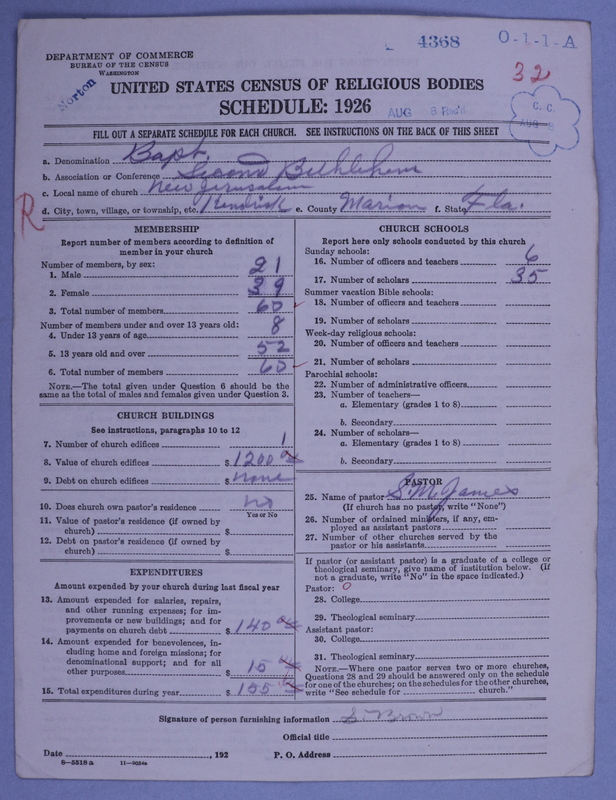 4368 O-1-1-A
DEPARTMENT OF COMMERCE
BUREAU OF THE CENSUS
WASHINGTON
Norton
32
UNITED STATES CENSUS OF RELIGIOUS BODIES
SCHEDULE: 1926
AUG
C. C.
FILL OUT A SEPARATE SCHEDULE FOR EACH CHURCH. SEE INSTRUCTIONS ON THE BACK OF THIS SHEET
a. Denomination Bapt.
b. Association or Conference Second Bethlehem
c. Local name of church New Jerusalem
d. City, town, village, or township, etc. Kendrick e. County Marion f. State Fla.
R
MEMBERSHIP
Report number of members according to definition of
member in your church
Number of members, by sex:
1. Male 21
2. Female 39
3. Total number of members 60
Number of members under and over 13 years old:
4. Under 13 years of age 8
5. 13 years old and over 52
6. Total number of members 60
NOTE.—The total given under Question 6 should be the
same as the total of males and females given under Question 3.
CHURCH BUILDINGS
See instructions, paragraphs 10 to 12
7. Number of church edifices 1
8. Value of church edifices $1200
9. Debt on church edifices $ none
10. Does church own pastor's residence no
Yes or No
11. Value of pastor's residence (if owned by
church) $
12. Debt on pastor's residence (if owned by
church) $
EXPENDITURES
Amount expended by your church during last fiscal year
13. Amount expended for salaries, repairs,
and other running expenses; for im-
provements or new buildings; and for
payments on church debt $140
14. Amount expended for benevolences, in-
cluding home and foreign missions; for
denominational support; and for all
other purposes $ 15
15. Total expenditures during year $ 155
CHURCH SCHOOLS
Report here only schools conducted by this church
Sunday schools:
16. Number of officers and teachers 6
17. Number of scholars 35
Summer vacation Bible schools:
18. Number of officers and teachers
19. Number of scholars
Week-day religious schools:
20. Number of officers and teachers
21. Number of scholars
Parochial schools:
22. Number of administrative officers
23. Number of teachers—
a. Elementary (grades 1 to 8)
b. Secondary
24. Number of scholars—
a. Elementary (grades 1 to 8)
b. Secondary
PASTOR
25. Name of pastor S. M. James
(If church has no pastor, write "None")
26. Number of ordained ministers, if any, em-
ployed as assistant pastors
27. Number of other churches served by the
pastor or his assistants
If pastor (or assistant pastor) is a graduate of a college or
theological seminary, give name of institution below. (If
not a graduate, write "No" in the space indicated.)
Pastor: O
28. College
29. Theological seminary
Assistant pastor:
30. College
31. Theological seminary
NOTE.—Where one pastor serves two or more churches,
Questions 28 and 29 should be answered only on the schedule
for one of the churches; on the schedules for the other churches,
write "See schedule for church."
Signature of person furnishing information S. Brown
Official title
Date , 192 P. O. Address
8-5518a 11-9034a